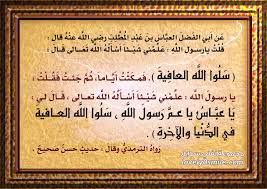 عَن أبي الفَضل العبَّاس بن عَبد المُطَّلِب رضي اللَّه عَنهُ قال :
قُلتُ يا رسول اللَّهِ : علِّمني شَيئاً أسألُهُ اللَّه تعالى ، قال :
( سَلُوا اللَّه العافِيةَ ) . فمكثتُ أيَّاماً، ثمَّ جئتُ فقُلتُ :
يا رسولَ اللَّه : علِّمني شيئاً أسألُهُ اللَّه تعالى ، قال لي ،
يَا عبَّاسُ يا عمَّ رسول اللَّهِ ، سَلُوا اللَّه العافيةَ
في الدُّنيا والآخرةِ ) .
رواهُ الترمذيُّ وقال : حديثٌ حسنٌ صحيحٌ .